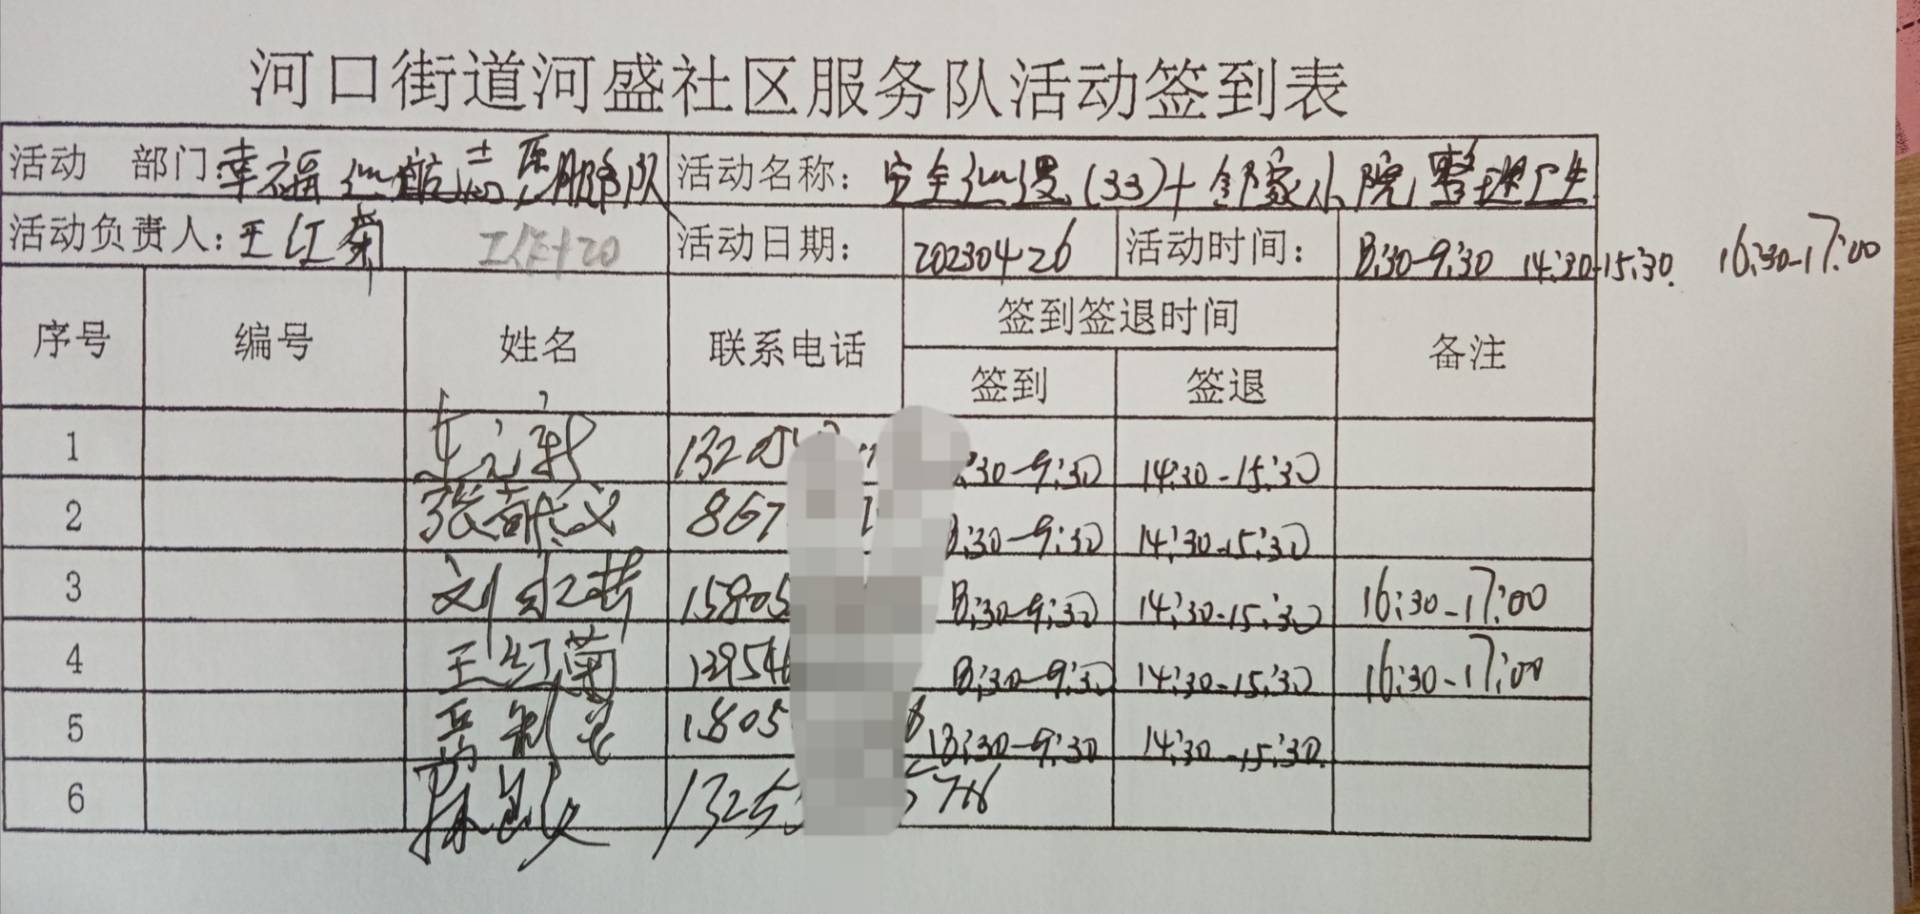 河口街道河盛社区服务队活动签到表
活动 部门 幸福巡航志愿服务队 活动名称： 安全巡逻(33)+邻家小院整理卫生
活动负责人：王红菊 活动日期： 20230426 活动时间： 8:30-9:30 14:30-15:30. 16:30-17:00
序号 编号 姓名 联系电话 签到签退时间 备注
签到 签退
1 :30-9:30 14:30-15:30
2 8:30-9:30 14:30-15:30
3 刘红芹 15805 8:30-9:30 14:30-15:30 16:30-17:00
4 王红菊 139546 8:30-9:30 14:30-15:30 16:30-17:00
5 1805 8:30-9:30 14:30-15:30.
6 1325